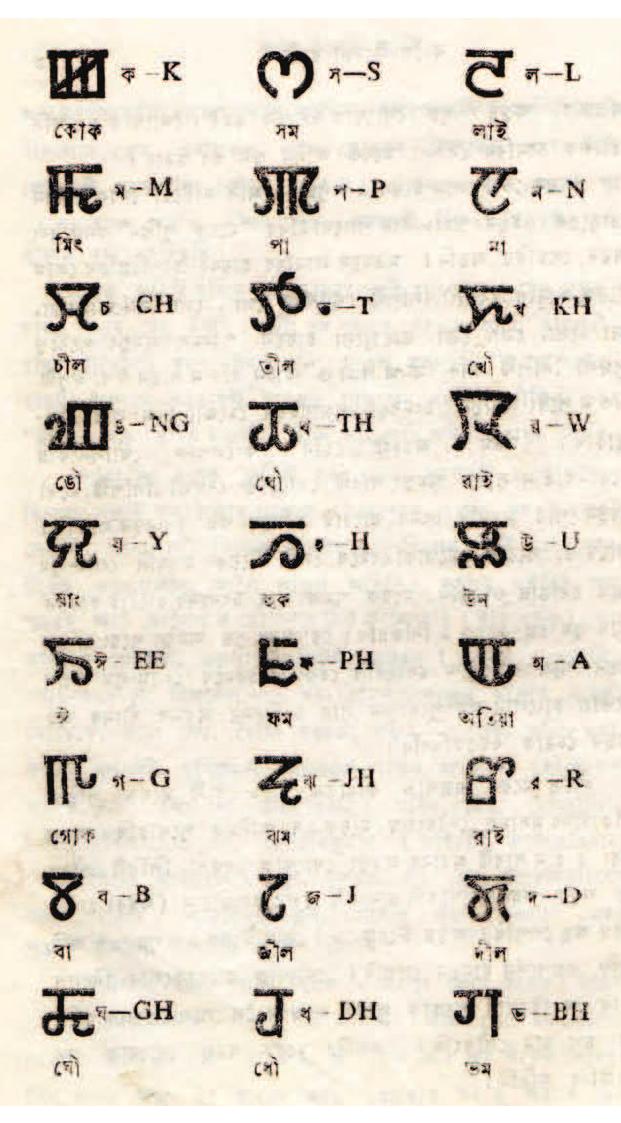 ꯀ ক –K ꯁ স—S ꯂ ল–L
কোক সম লাই
ꯃ ম–M ꯄ প–P ꯅ ন–N
মিং পা না
ꯆ চ CH ꯇ ত–T ꯈ খ KH
চীল তীল খৌ
ꯉ ঙ–NG ꯊ থ–TH ꯋ ৱ–W
ঙৌ থৌ ৱাই
ꯌ য়–Y ꯍ হ–H ꯎ উ–U
য়াং হুক উন
ꯏ ঈ– EE ꯐ ফ–PH ꯑ অ A
ঈ ফম অতিয়া
ꯒ গ–G ꯓ ঝ –JH ꯔ র–R
গোক ঝম রাই
ꯕ ব –B ꯖ জ–J ꯗ দ–D
বা জীল দীল
ꯘ ঘ—GH ꯙ ধ – DH ꯚ ভ–BH
ঘৌ ধৌ ভম